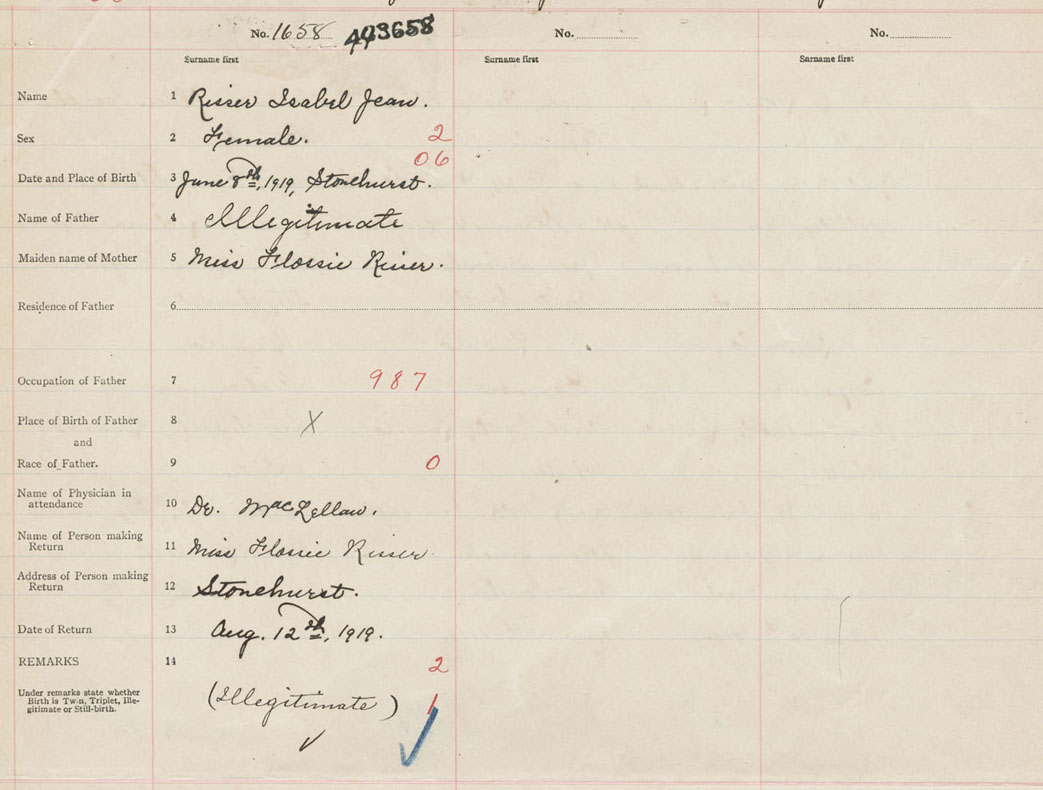 No. 1658 443658 No. No.
Surname first Surname first Surname first
Name 1 Risser Isabel Jean.
Sex 2 Female. 2
06
Date and Place of Birth 3 June 8th, 1919, Stonehurst.
Name of Father 4 Illegitimate
Maiden name of Mother 5 Miss Flossie Risser.
Residence of Father 6
Occupation of Father 7 987
Place of Birth of Father 8 X
and
Race of Father. 9 0
Name of Physician in
attendance 10 Dr. MacLellan.
Name of Person making
Return 11 Miss Flossie Risser
Address of Person making
Return 12 Stonehurst.
Date of Return 13 Aug. 12th, 1919.
REMARKS 14 2
Under remarks state whether
Birth is Twin, Triplet, Ille-
gitimate or Still-birth.
(Illegitimate) 1